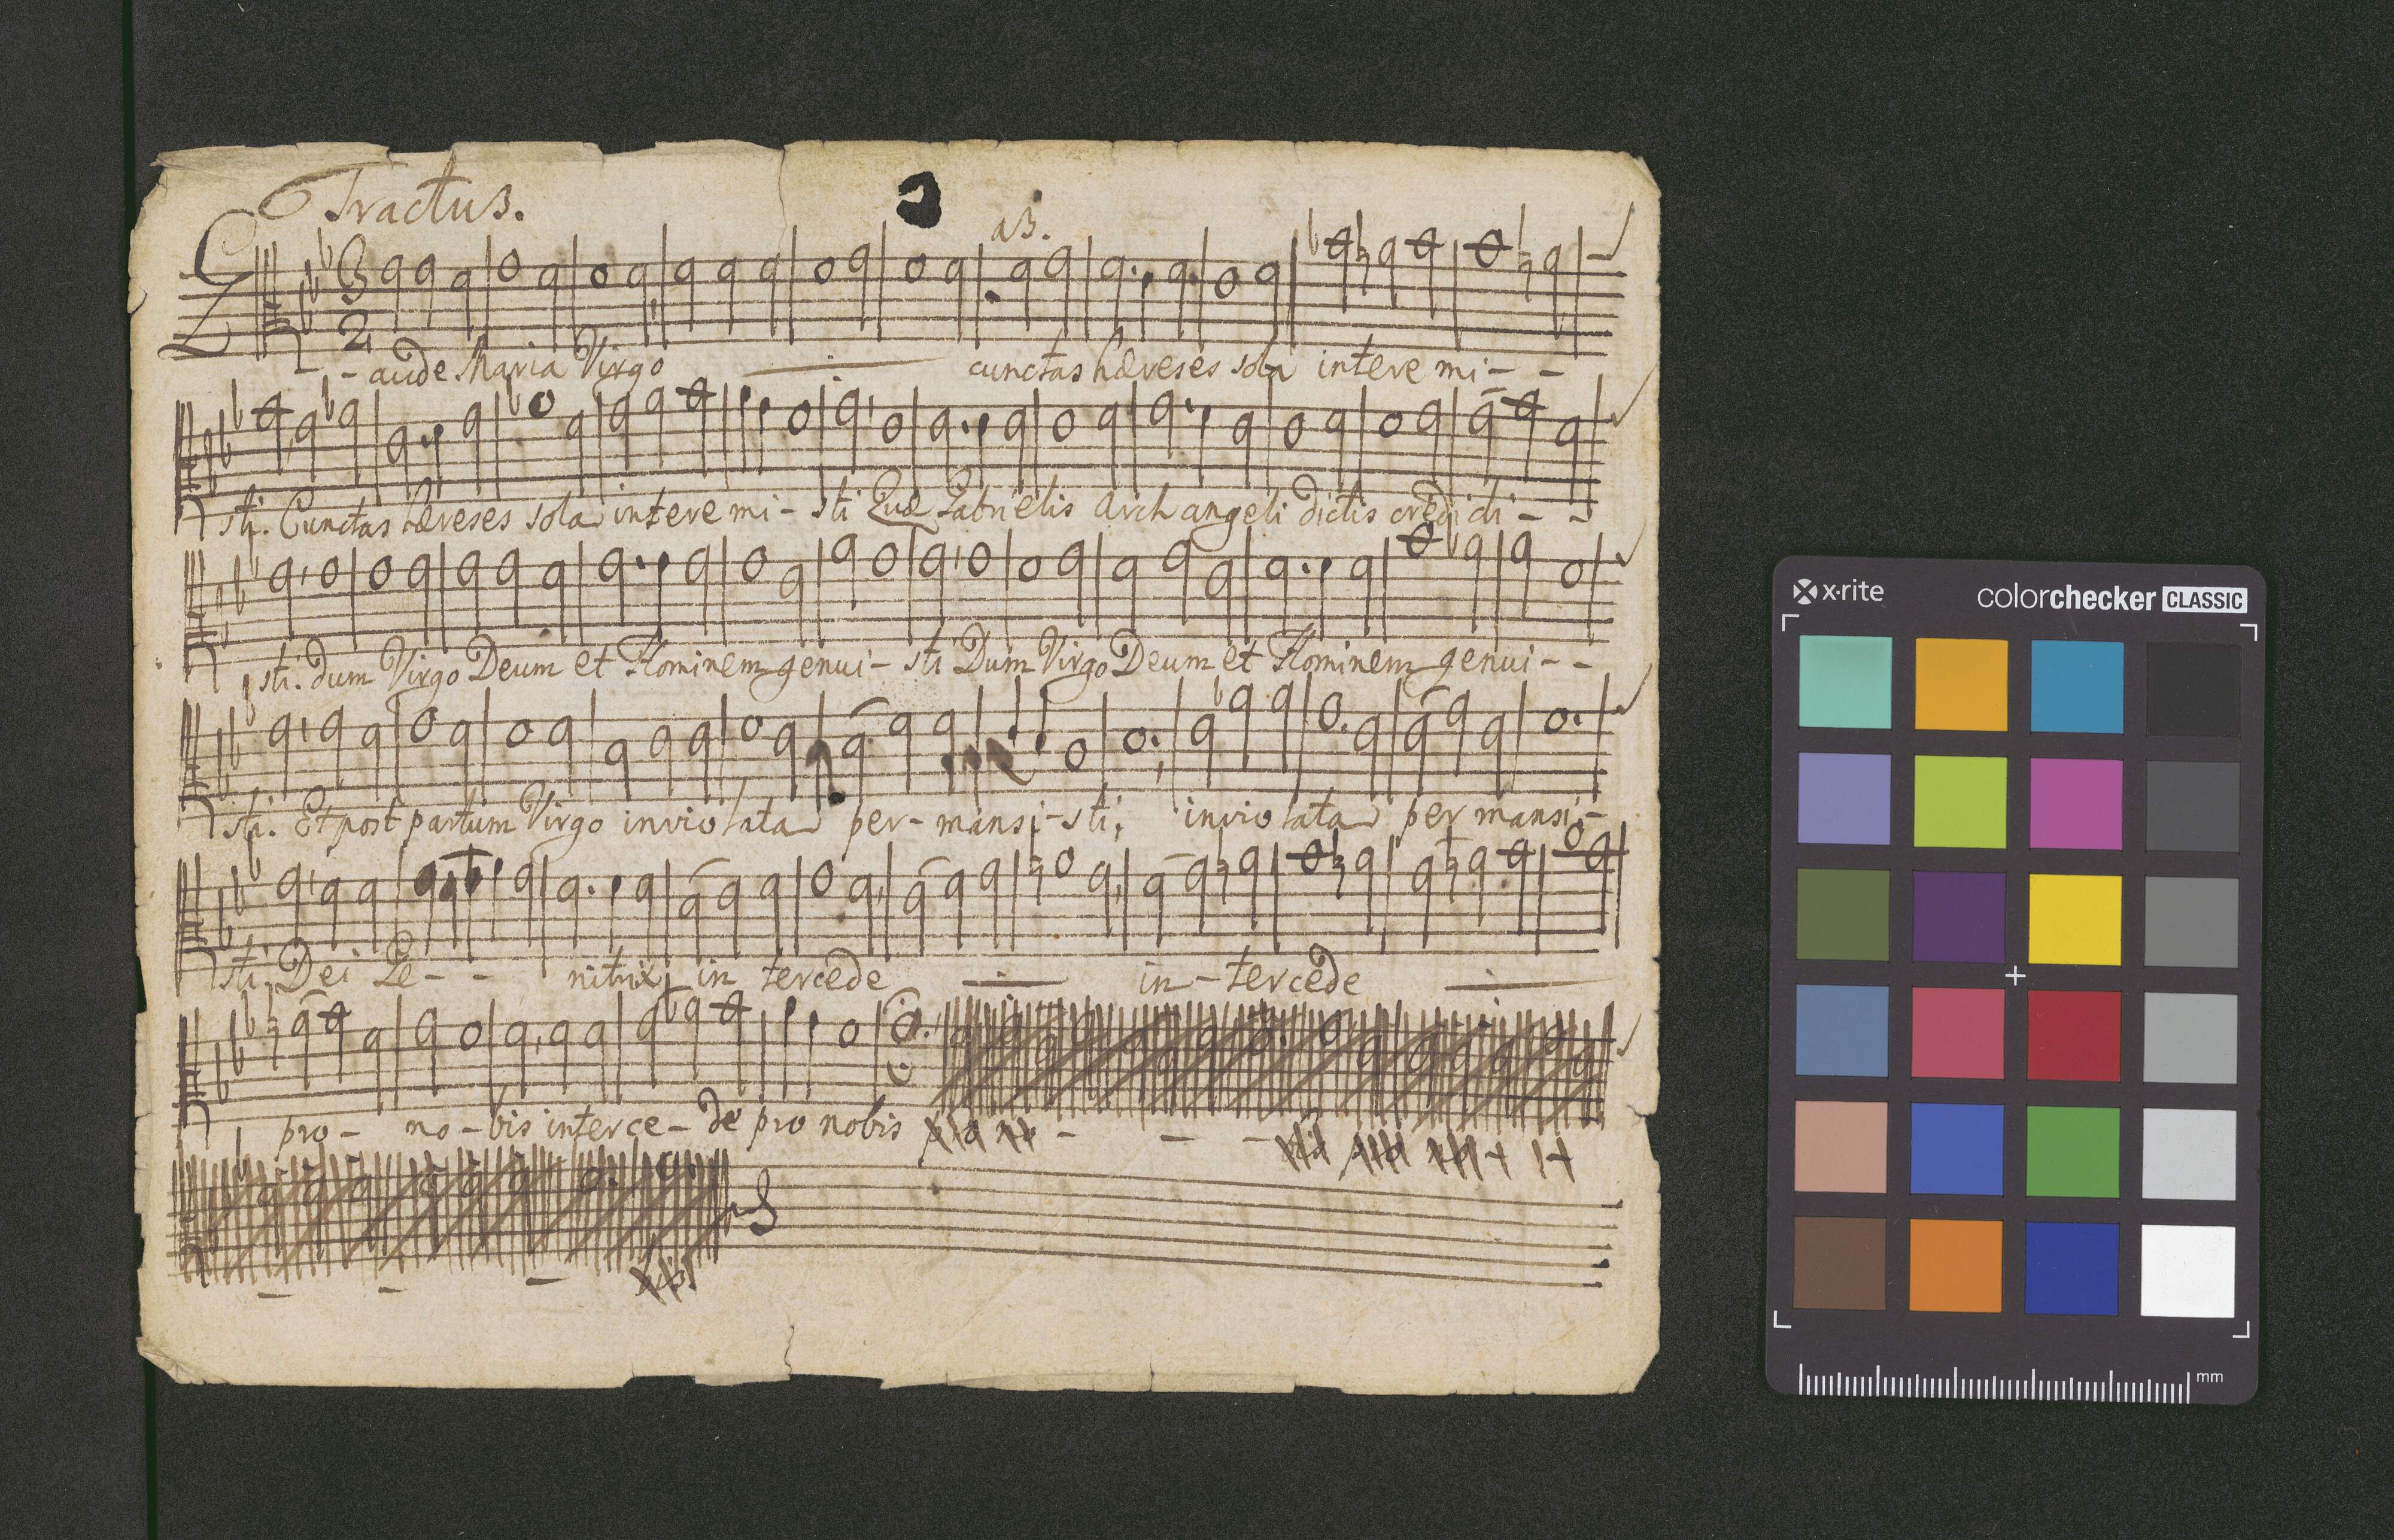 Tractus.
aB.
3
2
G - - aude Maria Virgo cunctas hæreses sola intere mi - -
sti. Cunctas hæreses sola intere mi - sti Quæ Gabrielis Archangeli dictis credidi - -
sti. dum Virgo Deum et Hominem genui - sti Dum Virgo Deum et Hominem genui - -
sti. Et post partum Virgo inviolata per - mansi - sti, inviolata per mansi -
sti, Dei Ge - - nitrix in tercede in - tercede
pro - no - bis interce - de pro nobis
x·rite colorchecker CLASSIC
mm